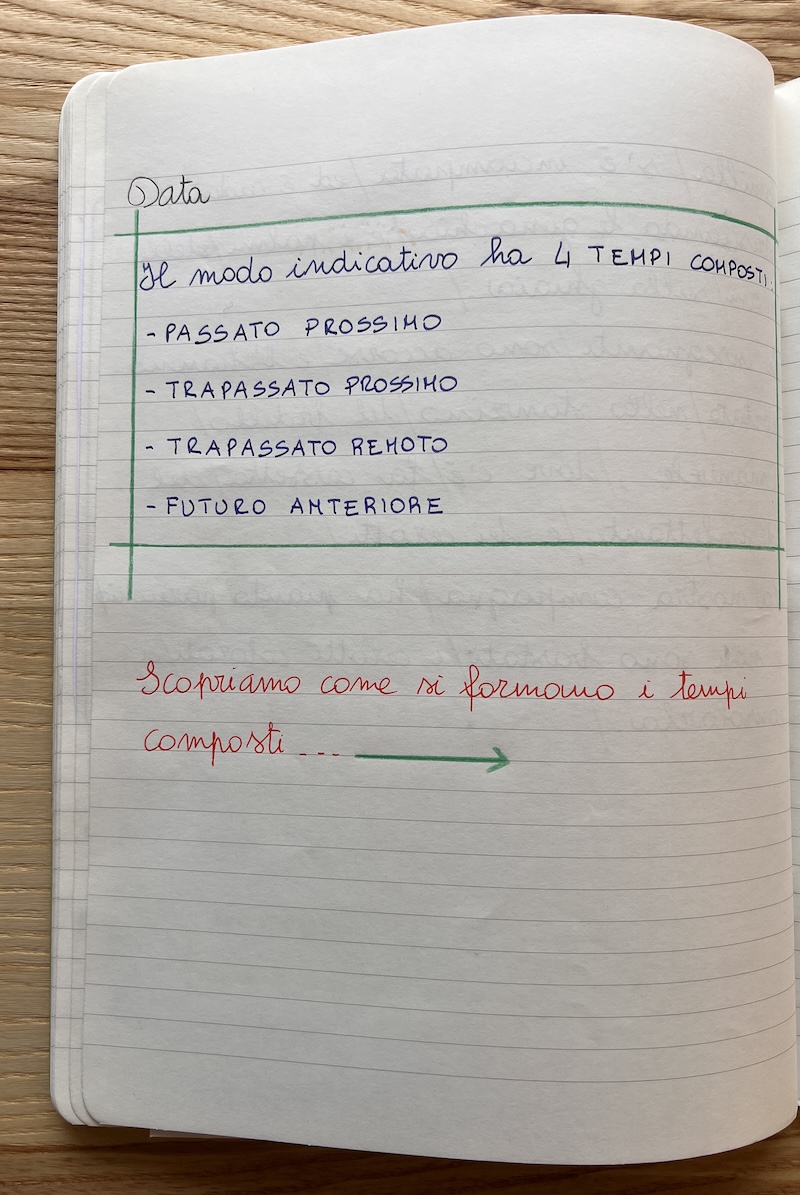 Data
Il modo indicativo ha 4 TEMPI COMPOSTI:
- PASSATO PROSSIMO
- TRAPASSATO PROSSIMO
- TRAPASSATO REMOTO
- FUTURO ANTERIORE
Scopriamo come si formano i tempi
composti...